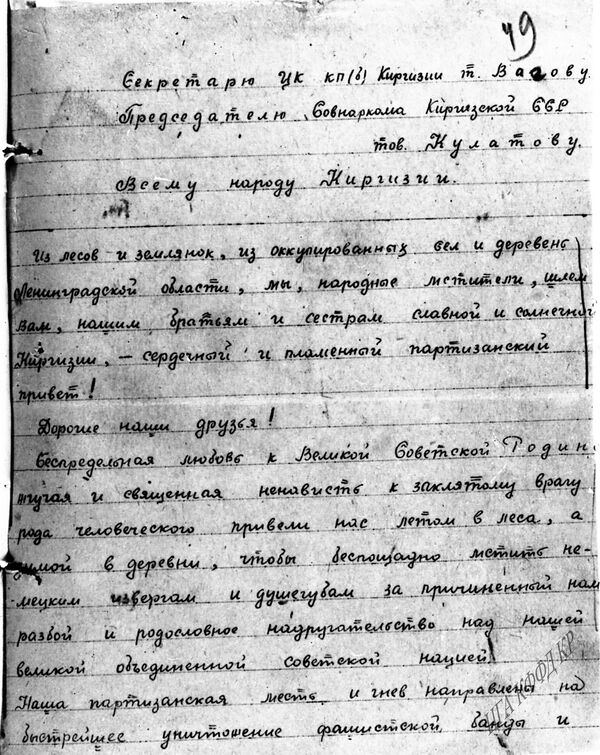 49
Секретарю ЦК КП(б) Киргизии т. Вагову.
Председателю Совнаркома Киргизской ССР
тов. Кулатову.
Всему народу Киргизии.
Из лесов и землянок, из оккупированных сел и деревень
Ленинградской области, мы, народные мстители, шлем
вам, нашим братьям и сестрам славной и солнечной
Киргизии, — сердечный и пламенный партизанский
привет!
Дорогие наши друзья!
Беспредельная любовь к Великой Советской Родин
жгучая и священная ненависть к заклятому врагу
рода человеческого привели нас летом в леса, а
зимой в деревни, чтобы беспощадно мстить не-
мецким извергам и душегубам за причиненный нам
разбой и родословное надругательство над нашей
великой объединенной советской нацией.
Наша партизанская месть и гнев направлены на
быстрейшее уничтожение фашистской банды и
ЦГА КФФД КР